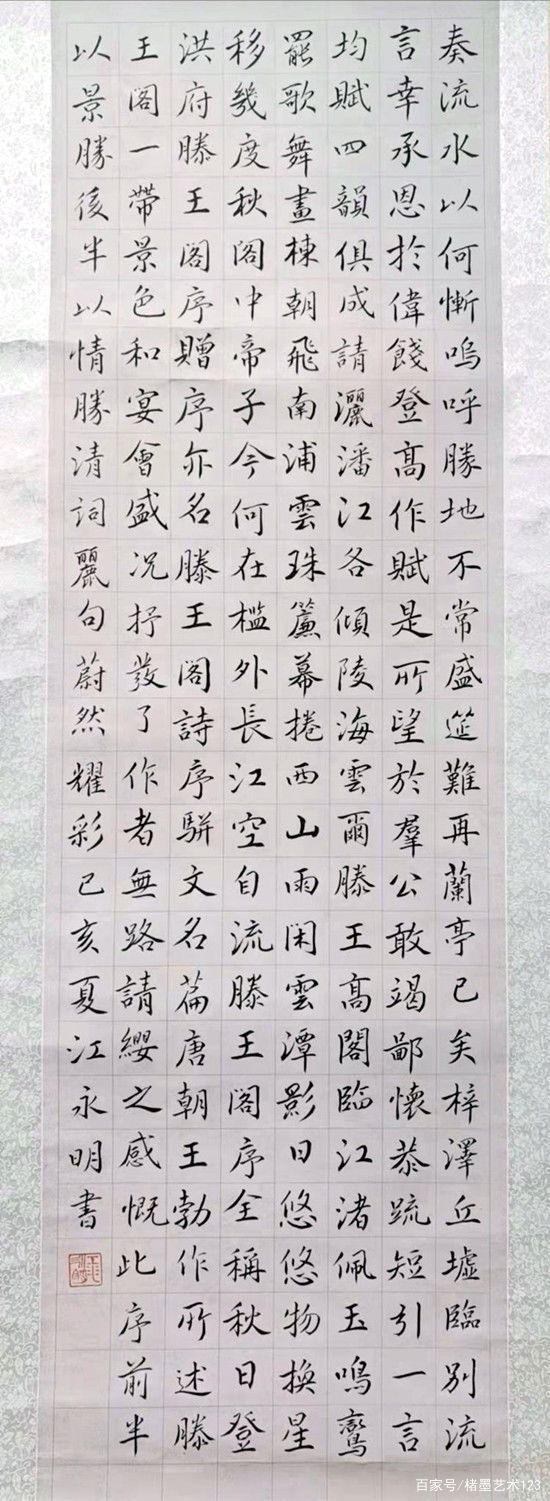 奏流水以何慚嗚呼勝地不常盛筵難再蘭亭已矣梓澤丘墟臨別流
言幸承恩於偉餞登高作賦是所望於羣公敢竭鄙懷恭疏短引一言
均賦四韻俱成請灑潘江各傾陵海雲爾滕王高閣臨江渚佩玉鳴鸞
罷歌舞畫棟朝飛南浦雲珠簾幕捲西山雨闲雲潭影日悠悠物換星
移幾度秋阁中帝子今何在槛外長江空自流滕王阁序全稱秋日登
洪府滕王阁序贈序亦名滕王阁詩序駢文名篇唐朝王勃作所述滕
王阁一帶景色和宴會盛况抒發了作者無路請纓之感慨此序前半
以景勝後半以情勝清詞麗句蔚然耀彩己亥夏江永明書
百家号/楮墨艺术123